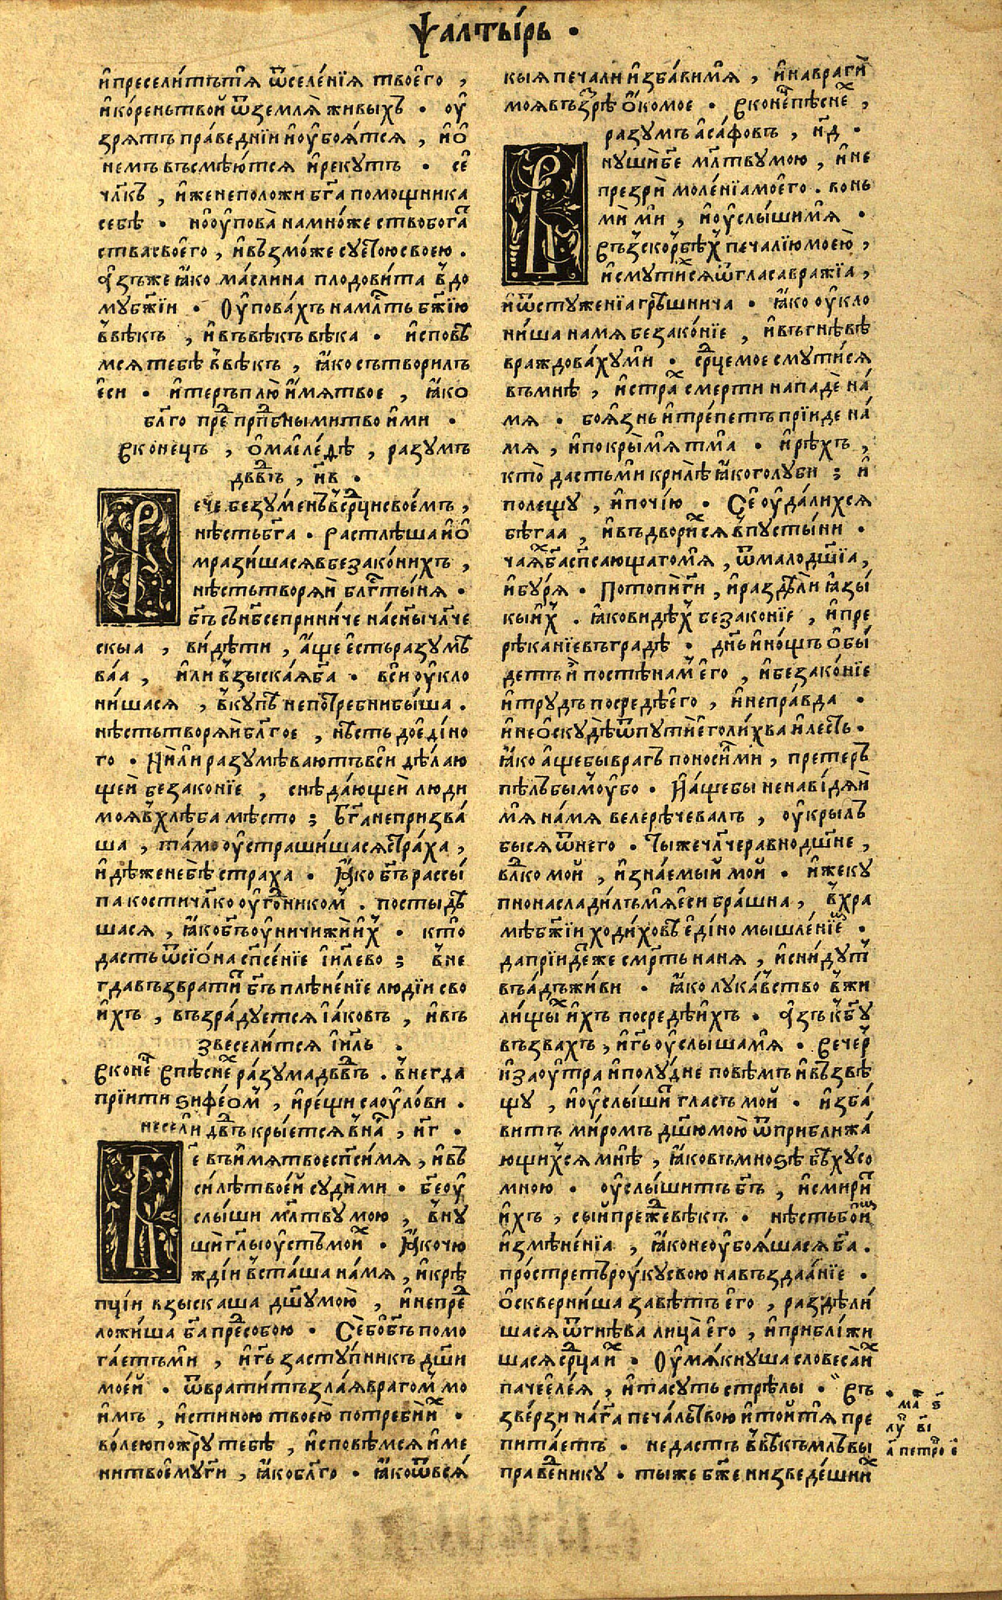 Ѱалты́рь ·
и҆преселитътѧ ѿселе́нїѧ твоегѡ ,
и҆ко́реньтвой ѿземлѧ живыхъ · оу҆
зрятъ пра́ведніи и҆оу҆боѧ́тсѧ , и҆ѡ҆
немъ въсмѣю́тсѧ и҆рекутъ · се҆
чл҃къ , и҆женеположи бг҃а помощника
себѣ · но оу҆пова̀ намно́жество бога
ствасвоего , и҆възмо́же суетою своею .
А҆зъже ꙗ҆́ко ма́слина плодови́та в̾до
мубж҃іи · Оу҆пова́хъ намл҃ть бж҃їю
в̾вѣкъ , и҆въвѣкъ вѣка · и҆сповѣ
мсѧ тебѣ в̾вѣкъ , ꙗ҆́ко сътворилъ
еси · и҆терьплю̀ и҆́мѧ твое , ꙗ҆́ко
бл҃го пре прпⷣбнымитвои҆ми ·
Вконецъ , ѡ҆маеле́ѳѣ , разумъ
дв҃въ , н҃в ·
Рече безу́менъ в̾срⷣци своемъ ,
нѣсть бг҃а · Растлѣша и҆ѡ҆
мрази́шасѧ в беззако́нихъ ,
нѣсть творѧ́й блг҃ты́нѧ ·
бг҃ъ сънб҃се приниче на сн҃ы чл҃че
скыа , ви́дѣти , а҆́ще е҆сть разумѣ
ва́ѧ , и҆ли взыска́ѧ бг҃а · вси оу҆кло
ни́шасѧ , вку́пѣ непотребни быша .
нѣсть творѧ́й бл҃гое , нѣсть до е҆ди́но
го · Ни́ли разумѣваютъ вси дѣ́лаю
щей беззако́нїе , снѣда́ющей люди
моѧ вхлѣба мѣсто ; Бг҃а непризва́
ша , та́мо оу҆страши́шасѧ стра́ха ,
и҆дѣже небѣ страха · Ꙗ҆́ко бг҃ъ рассы́
па кости чл҃ко оу҆го́дником · постыдѣ
шасѧ , ꙗ҆́ко бг҃ъ оу҆ничижѝ и҆̀х · кто̀
дасть ѿсїѡ́на сп҃се́нїе і҆и҃лево ; вне
гда възврати́т бг҃ъ плѣне́нїе людїи сво
и҆хъ , възра́дуетсѧ і҆а́ковъ , и҆въ
звесели́тсѧ і҆и҃ль .
Вконе В пѣсне ра́зума дв҃въ . Внегда
прїити ѕифе́ом , и҆ре́щи саоу́лови ·
несе́ли дв҃дъ кры́етсѧ в̾на , н҃г ·
Бе въи҆́мѧ твое сп҃си́мѧ , и҆въ
си́лѣ твое́й суди́ми · бе҃ оу҆
слы́ши мл҃тву мою , вну
шѝ гл҃ы оу҆стъ мои · Ꙗ҆́ко чю
жді́и въста́ша на́мѧ , и҆крѣ
пціи взыскаша дш҃у мою̀ , и҆непре
ложи́ша бг҃а пресобою · Се бо бг҃ъ помо
га́етъми , и҆гь҃ засту́пникъ дш҃и
мое́й · ѿврати́тъ зла́ѧ врагом мо
и҆мъ , и҆стиною твоею потреби и҆ ·
во́лею пожру̀ тебѣ , и҆сповѣ́мсѧ и҆ме
ни твоемугⷭи , ꙗ҆́ко бл҃го · ꙗ҆́ко ѿ всѧ́
кыѧ печали и҆зба́ви мѧ , и҆на врагѝ
моѧ възрѣ ѻ҆́ко мое · Вконе пѣсне ,
разумъ а҆са́фовъ , н҃д ·
Внушѝ бе҃ мл҃тву мою , и҆не
презрѝ моле́нїа моего . во́нь
мѝ ми , и҆оу҆слы́ши мѧ ·
Въ́зскорбѣх печалїю моею̀ ,
и҆смути́хсѧ ѿ гласа вражїа ,
и҆ѿ стуженїа грѣ́шнича · ꙗ҆́ко оу҆кло
ни́ша намѧ беззако́нїе , и҆въгнѣвѣ
враждова́хуми · срⷣце мое смутисѧ
въмнѣ , и҆стра́х смерти нападѐ на́
мѧ · боѧ́знь и҆тре́петъ прїи́де на́
мѧ , и҆покры́ мѧ тма · и҆рѣ́хъ ,
кто̀ дастьми крилѣ ꙗ҆́ко голуби ; и҆
полещу , и҆почі́ю · Се оу҆дали́хсѧ
бѣгаа , и҆въдвори́хсѧ в̾пусты́ни ·
ча́ѧх бг҃а сп҃сающаго мѧ , ѿмалодш҃їа ,
и҆бу́рѧ · Потопѝ гⷭи , и҆раздѣлѝ ꙗ҆зы́
кы и҆х . ꙗ҆́ко видѣх беззаконїе , и҆пре
рѣканїе въградѣ · дн҃ь и҆но́щь ѡ҆бы́
детъ и҆ постѣнам его , и҆беззако́нїе
и҆трудъ посредѣ е҆го , и҆непра́вда ·
и҆неѡ҆скудѣ̀ ѿпутїи е҆го ли́хва и҆ле́сть ·
ꙗ҆́ко а҆ще бы врагъ поноси́лми , претерь
пѣлъ бым оу҆бо · И҆а҆́ще бы ненави́дѧй
мѧ на́мѧ велерѣ́чевалъ , оу҆крылъ
бысѧ ѿ него · Ты же чл҃че равнодш҃не ,
вл҃ко мой , и҆зна́емый мой · и҆же ку
пно наслади́лъ мѧ еси бра́шна , в̾хра
мѣ бж҃їи ходи́ховѣ е҆ди́номышле́нїем ·
да прїидеже смр҃ть наня , и҆сни́дут
въа҆дъ жи́ви · ꙗ҆́ко лука́вство вжи
ли́щых и҆хъ посредѣ и҆хъ · А҆зъ к бг҃у
възва́хъ , и҆гь҃ оу҆слы́ша мѧ · Вечер
и҆заоу҆тра и҆полу́дне повѣмъ и҆възвѣ
щу , и҆оу҆слы́ши гласъ мой · и҆зба́
витъ ми́ромъ дш҃ю мою̀ ѿ приближа́
ющихсѧ мнѣ , ꙗ҆́ко въмнозѣ бѣ́ху со
мною · оу҆слы́шитъ бг҃ъ , и҆смири́т
и҆хъ , сы́й преже вѣкъ · нѣсть бо и҆м
и҆змѣне́нїа , ꙗ҆́ко неоу҆боѧ́шасѧ бг҃а .
простре́тъ руку свою навъзда́анїе ·
ѡ҆скверни́ша завѣтъ е҆го , раздѣли́
шасѧ ѿ гнѣва лица̀ е҆го , и҆прибли́жи
шасѧ срⷣца и҆х · Оу҆мѧкнуша словеса и҆х
паче е҆ле́ѧ , и҆та суть стрѣлы · Въ
зве́рзи на гⷭа печаль твою и҆ той тѧ пре
пита́етъ · не дасть в̾вѣкъ млъвы
праведнику · ты же бж҃е низведе́ши и҆х
ма ѕ҃
лу в҃і
а҃ петро е҃